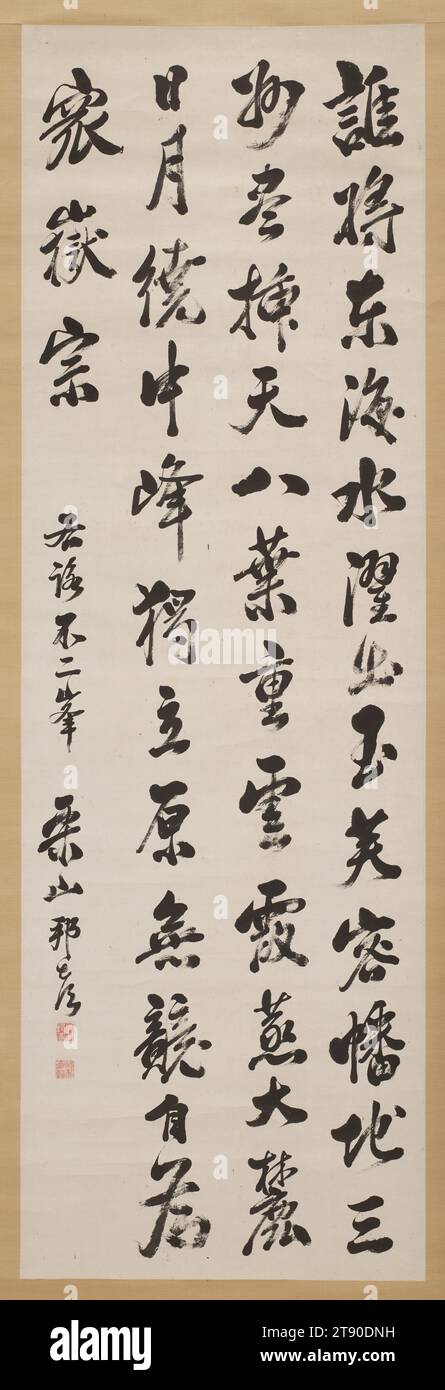 誰將東海水濯出玉芙蓉幡地三
州盡插天八葉重雲霞蒸大麓
日月繞中峰獨立原無競自為
衆嶽宗
右詠不二峯 栗山邦彦
alamy
Image ID: 2T90DNH
www.alamy.com